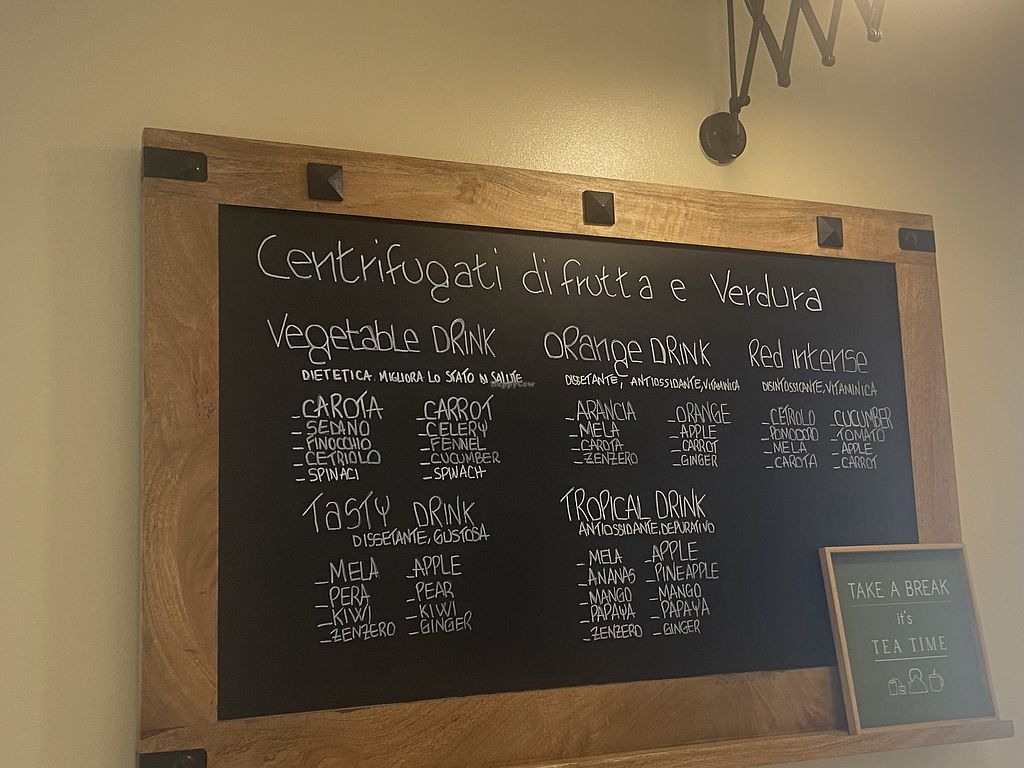 Centrifugati di frutta e Verdura
Vegetable DRINK
DIETETICA. MIGLIORA LO STATO DI SALUTE
_CAROTA _CARROT
_SEDANO _CELERY
_FINOCCHIO _FENNEL
_CETRIOLO _CUCUMBER
_SPINACI _SPINACH
ORange DRINK
DISSETANTE, ANTIOSSIDANTE, VITAMINICA
_ARANCIA _ORANGE
_MELA _APPLE
_CAROTA _CARROT
_ZENZERO _GINGER
Red intense
DISINTOSSICANTE, VITAMINICA
_CETRIOLO _CUCUMBER
_POMODORO _TOMATO
_MELA _APPLE
_CAROTA _CARROT
TasTy DRINK
DISSETANTE, GUSTOSA
_MELA _APPLE
_PERA _PEAR
_KIWI _KIWI
_ZENZERO _GINGER
TROPICAL DRINK
ANTIOSSIDANTE, DEPURATIVO
_MELA _APPLE
_ANANAS _PINEAPPLE
_MANGO _MANGO
_PAPAYA _PAPAYA
_ZENZERO _GINGER
TAKE A BREAK
it's
TEA TIME
HappyCow